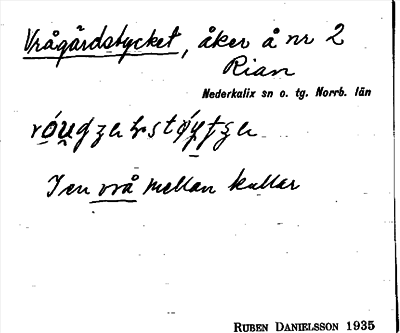 Vrågårdstycket, åker å nr 2
Rian
Nederkalix sn o. tg. Norrb. län
I en vrå mellan kullar
RUBEN DANIELSSON 1935